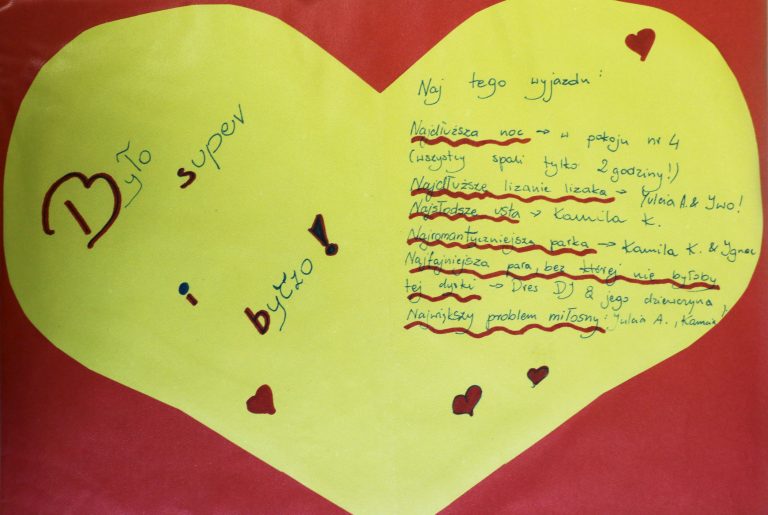 Było super
i byczo!
Naj tego wyjazdu:
Najdłuższa noc → w pokoju nr 4
(wszyscy spali tylko 2 godziny!)
Najdłuższe lizanie lizaka → Julcia A. & Iwo!
Najsłodsze usta → Kamila K.
Najromantyczniejsza parka → Kamila K. & Ignac
Najfajniejsza para, bez której nie byłoby
tej dyski → Dres DJ & jego dziewczyna
Największy problem miłosny: Julcia A.,